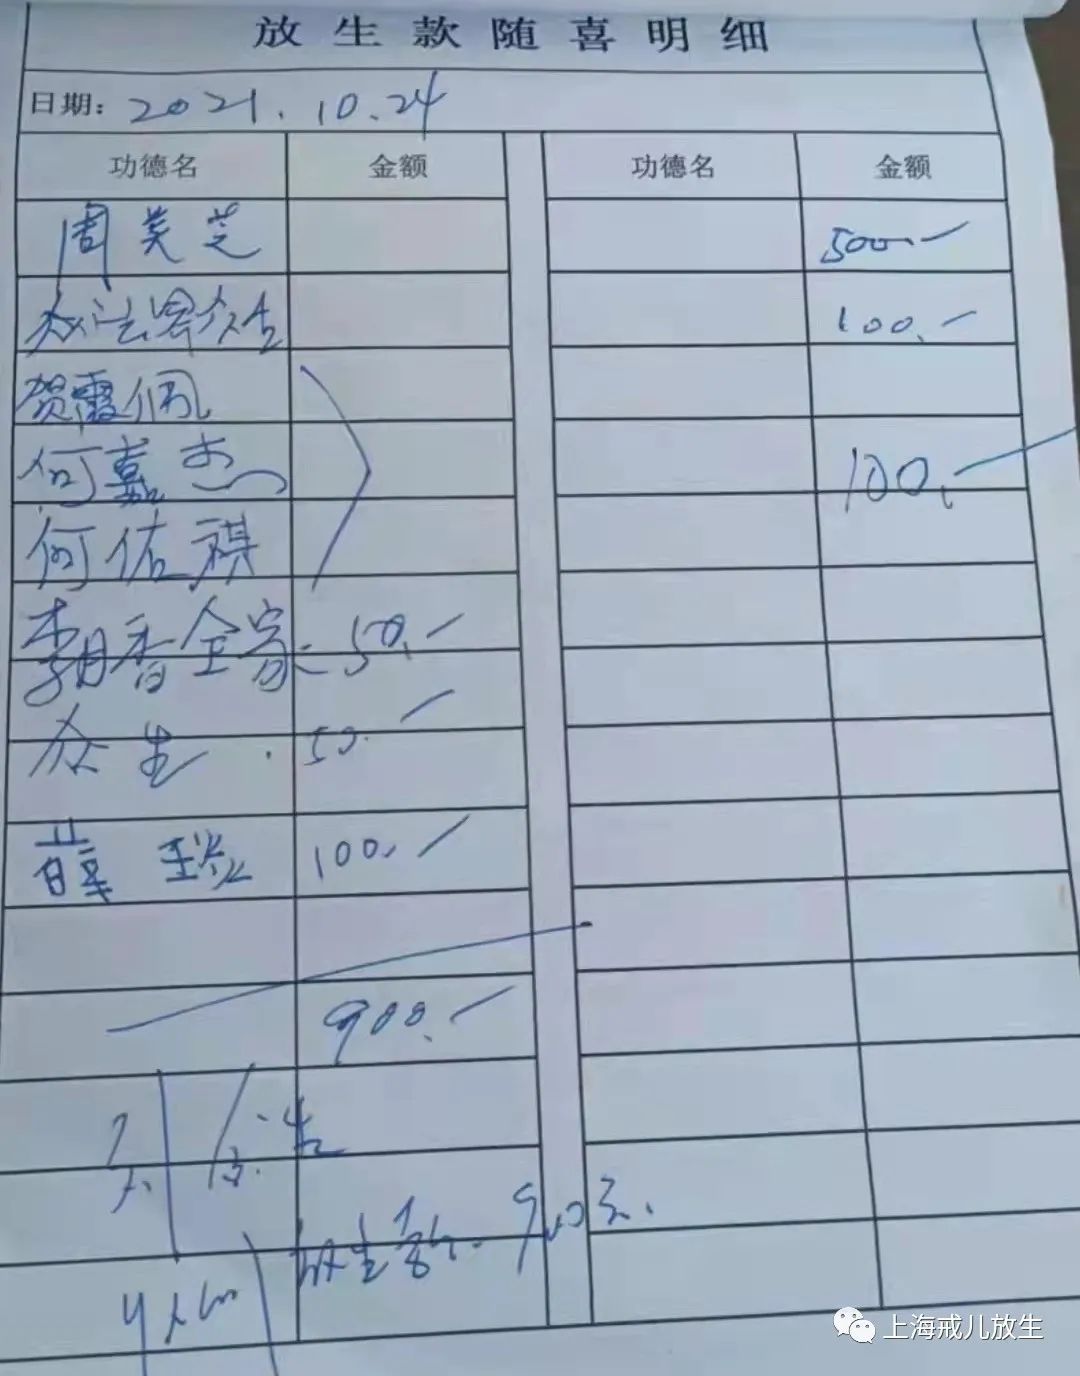 放生款随喜明细
日期: 2021.10.24
功德名 金额 功德名 金额
周美芝 500.-
法界众生 100.-
贺霞佩
何嘉杰 100.-
何佑祺
李月香全家 50.-
众生 50.-
薛 100.-
900.-
放生款 900元.
上海戒儿放生